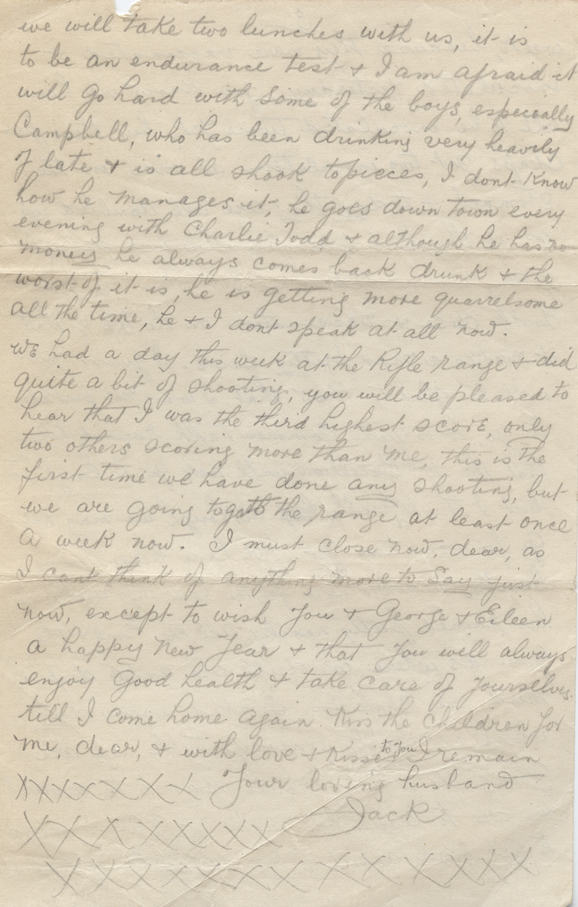 we will take two lunches with us, it is
to be an endurance test + I am afraid it
will go hard with some of the boys, especially
Campbell, who has been drinking very heavily
of late + is all shook topieces, I dont know
how he manages it, he goes down town every
evening with Charlie Todd + although he has no
money he always comes back drunk + the
worst of it is, he is getting more quarrelsome
all the time, he + I dont speak at all now.
We had a day this week at the Rifle range + did
quite a bit of shooting, you will be pleased to
hear that I was the third highest score, only
two others scoring more than me, this is the
first time we have done any shooting, but
we are going to the range at least once
a week now. I must close now, dear, as
I cant think of anything more to say just
now, except to wish you + George + Eileen
a happy New Year + that you will always
enjoy good health + take care of yourselves
till I come home again. Kiss the children for
me, dear, + with love + kisses to you I remain
XXXXXXXX Your loving husband
XXXXXXXXX Jack
XXXXXXXXXXXXX